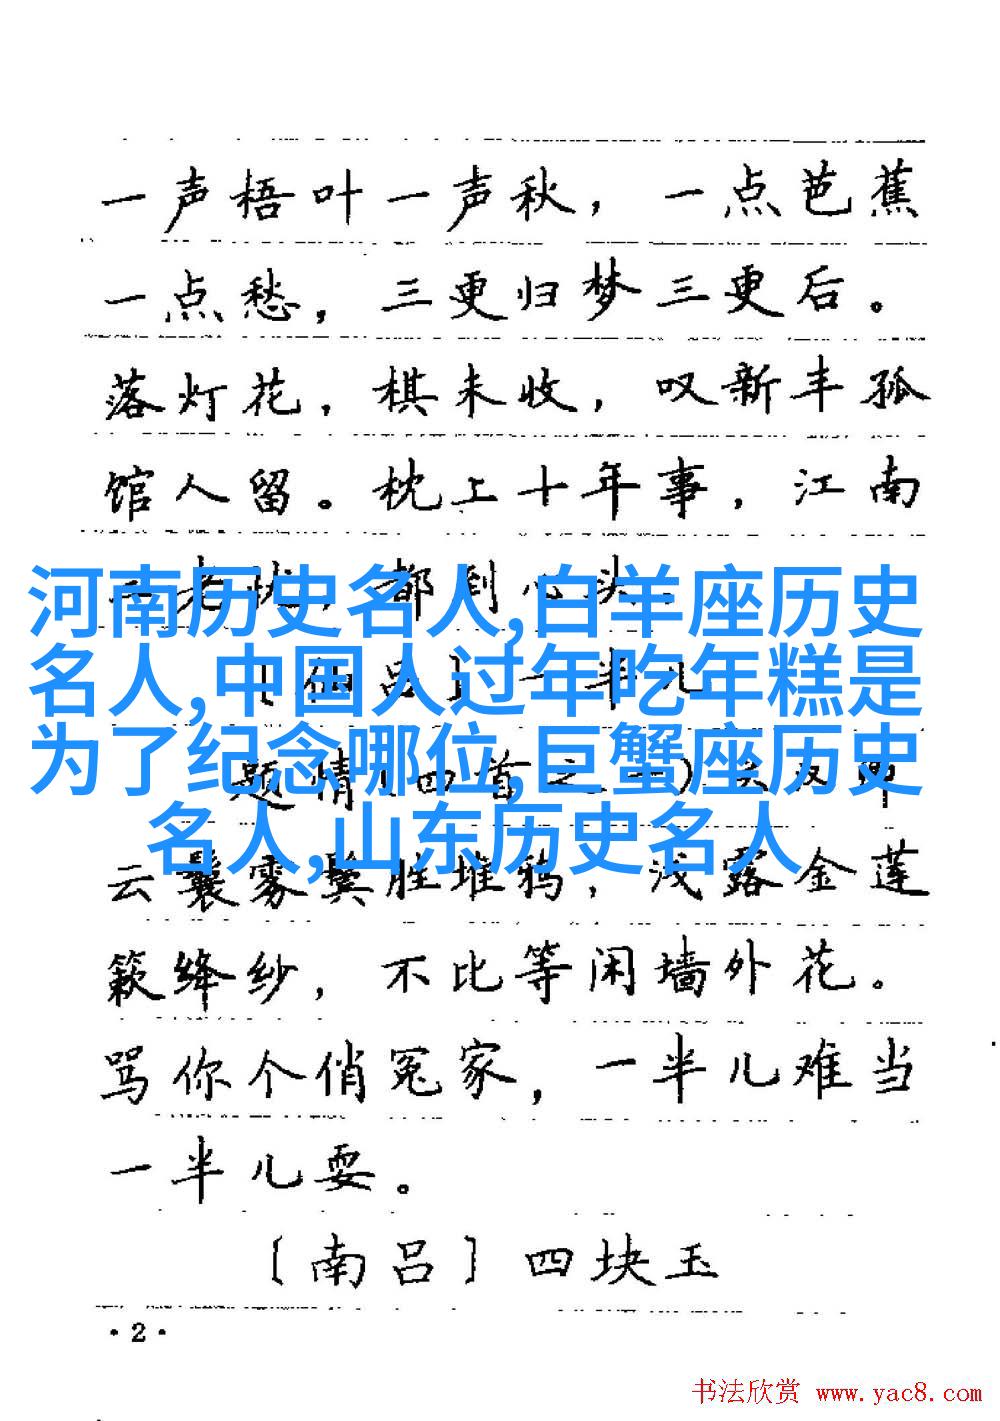 一声梧叶一声秋，一点芭蕉
一点愁，三更归梦三更后。
落灯花，棋未收，叹新丰孤
馆人留。枕上十年事，江南
老忧，都到心头
河南历史名人,白羊座历史
名人,中国人过年吃年糕是
为了纪念哪位,巨蟹座历史
名人,山东历史名人
吕〕一半儿
题情(四首之一)
云鬟雾鬓胜堆鸦，浅露金莲
簌绛纱，不比等闲墙外花。
骂你个俏冤家，一半儿难当
一半儿耍。
〔南吕〕四块玉
·2·
书法欣赏 www.yac8.com